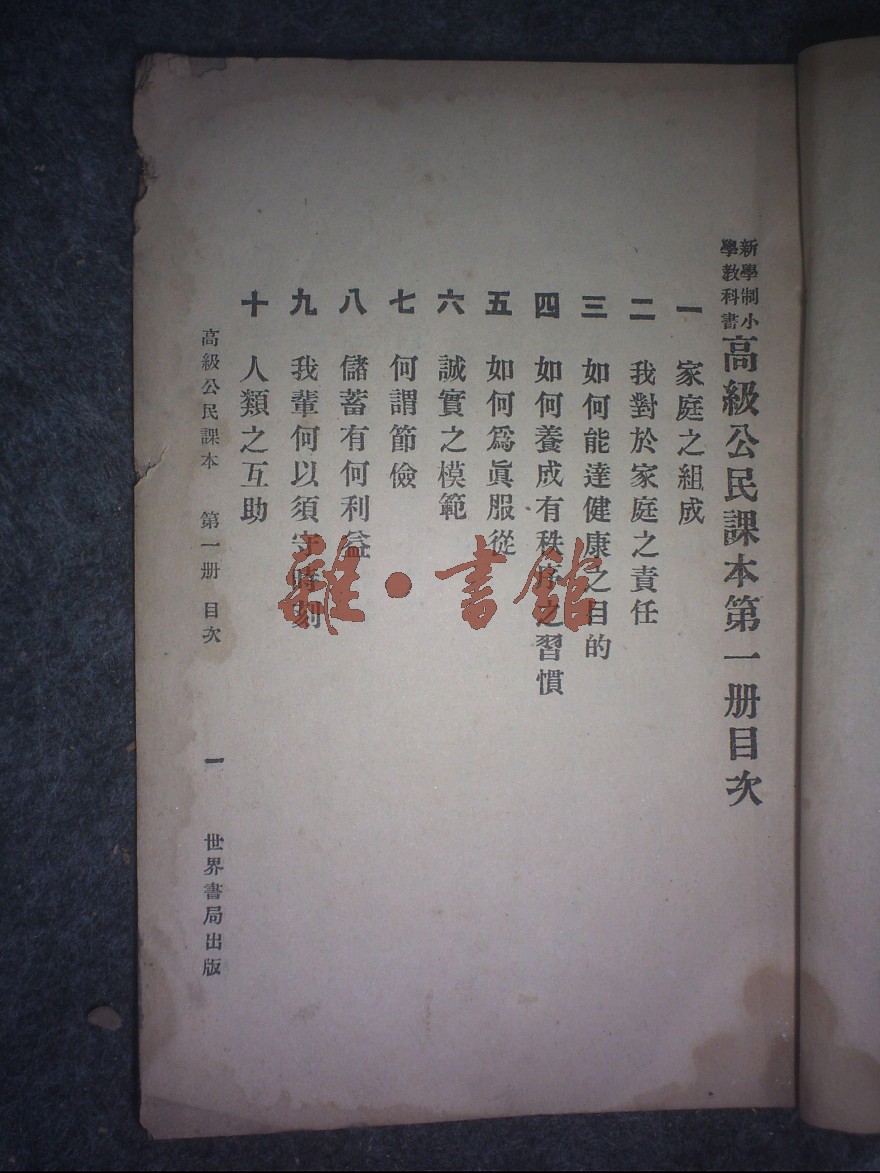 新學制小
學教科書
高級公民課本第一册目次
一 家庭之組成
二 我對於家庭之責任
三 如何能達健康之目的
四 如何養成有秩序之習慣
五 如何爲眞服從
六 誠實之模範
七 何謂節儉
八 儲蓄有何利益
九 我輩何以須守時刻
十 人類之互助
高級公民課本 第一册 目次 一 世界書局出版
雜·書館